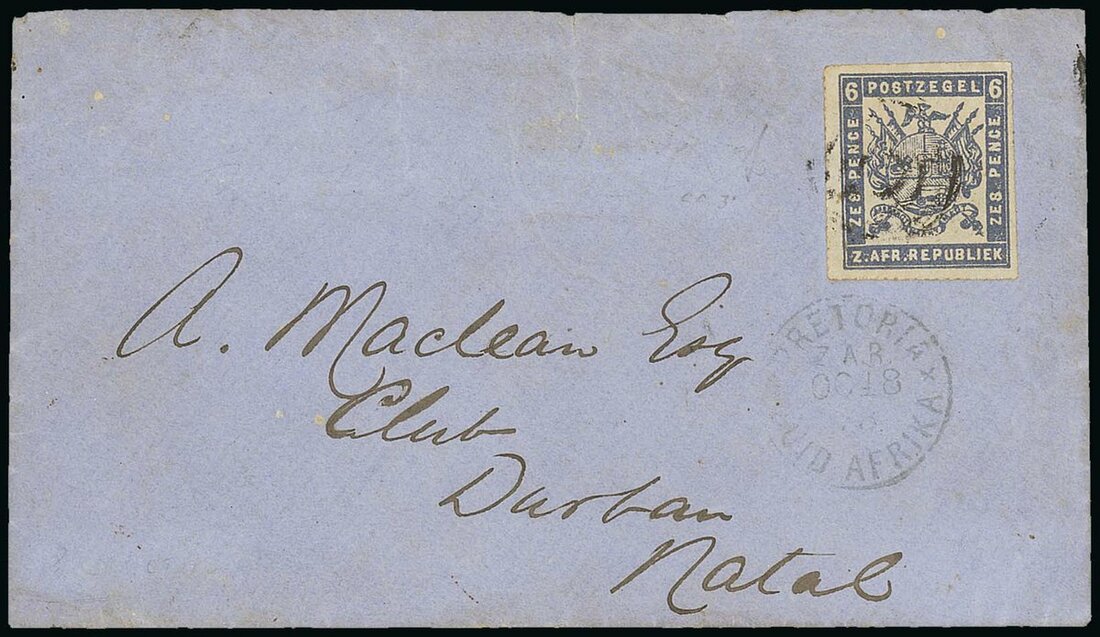 6 POSTZEGEL 6
ZES PENCE
ZES PENCE
Z. AFR. REPUBLIEK
A. Maclean Esq
Club
Durban
Natal
PRETORIA
Z.A.R.
OC 18
ZUID AFRIKA